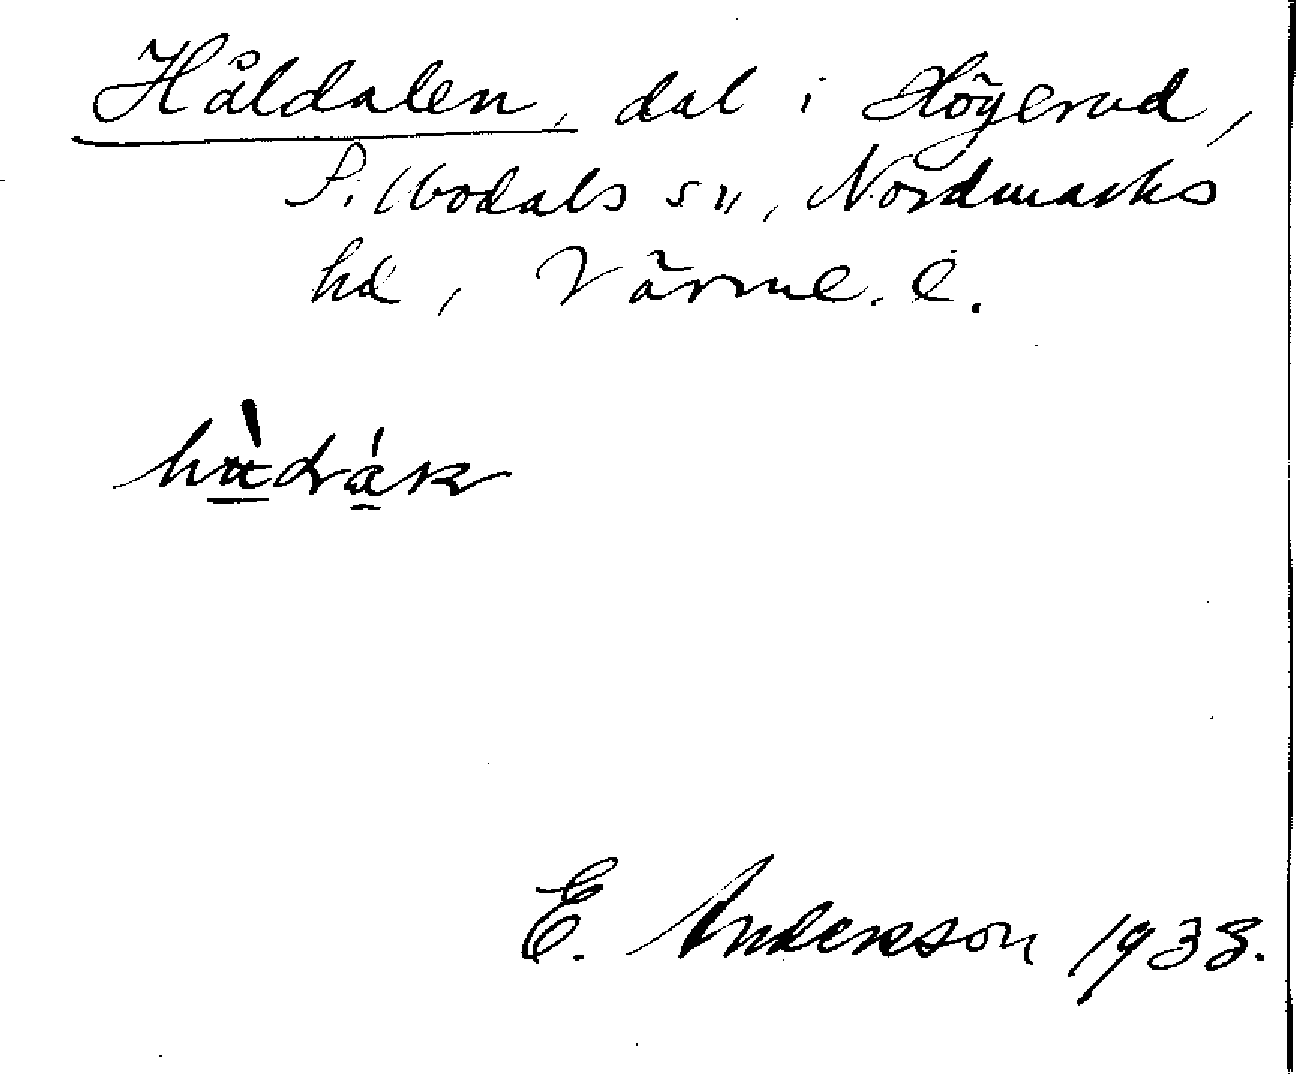 Håldalen, dal i Högerud,
Silbodals sn, Nordmarks
hd, Värml. l.
E. Anderson 1933.